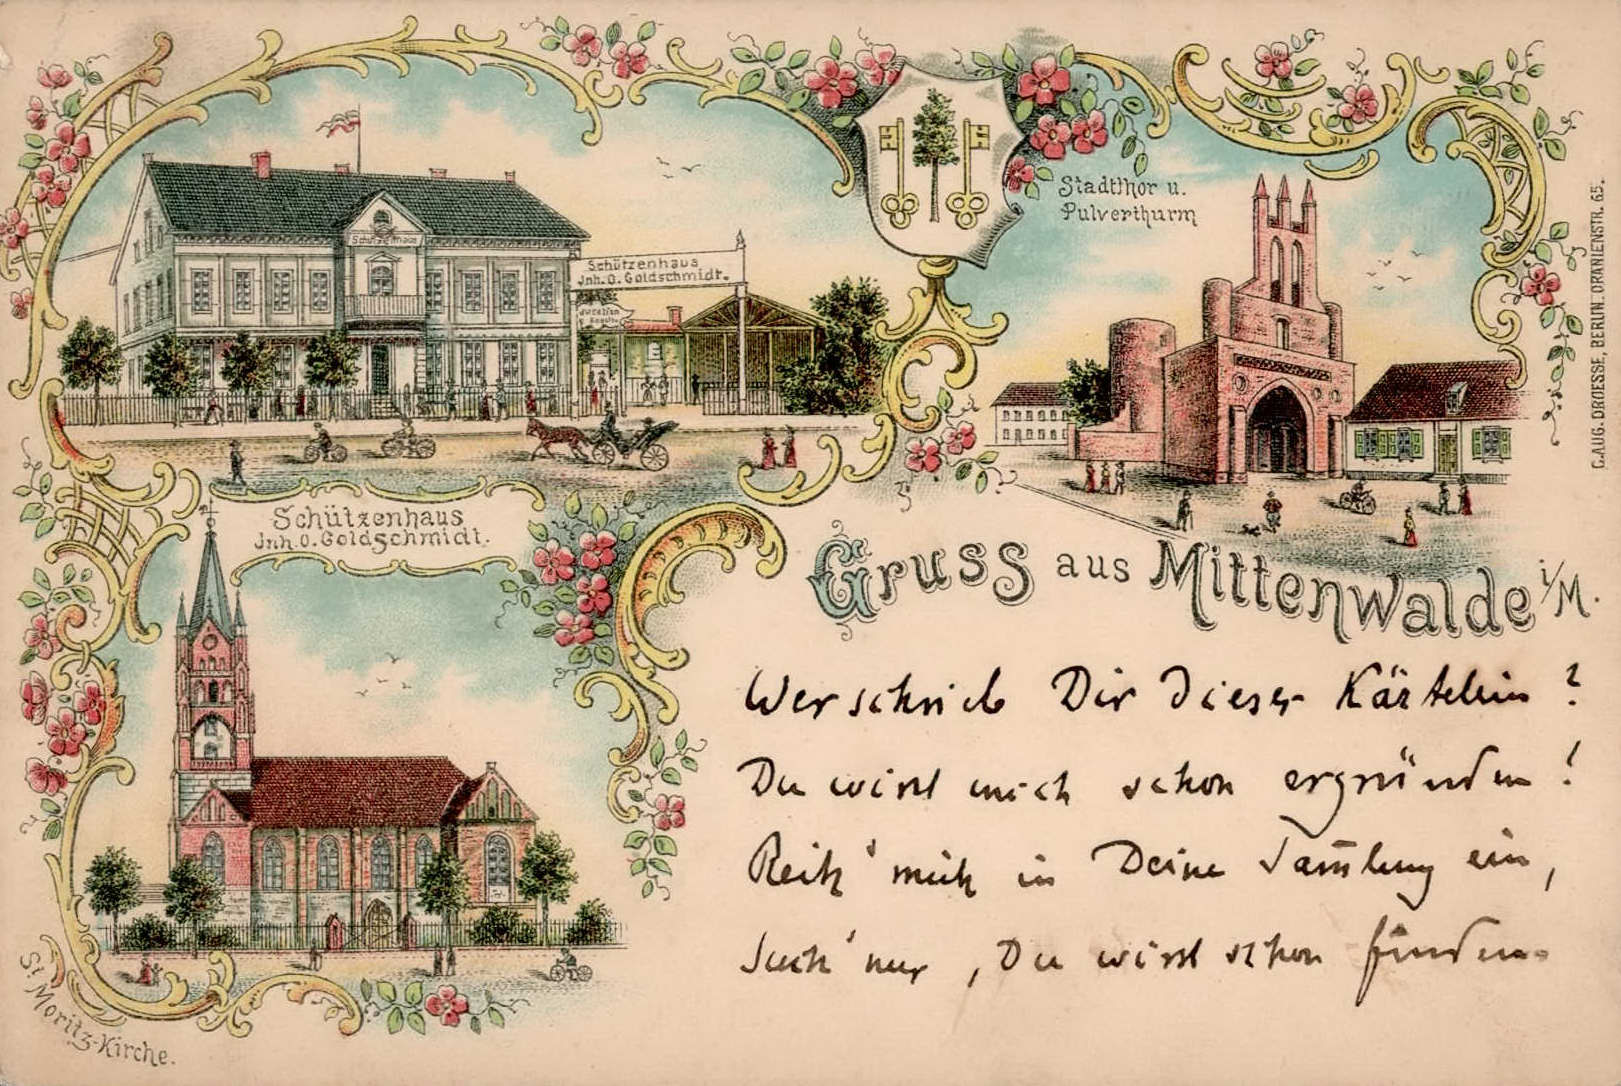 Schützenhaus
Jnh. O. Goldschmidt.
Stadtthor u.
Pulverthurm
Schützenhaus
Jnh. O. Goldschmidt.
St. Moritz-Kirche.
Gruss aus Mittenwalde i/M.
Wer schrieb Dir dieses Kärtelein?
Du wirst mich schon ergründen!
Reih' mich in Deine Sam̄lung ein,
Such' nur, Du wirst schon finden.
C. AUG. DROESSE, BERLIN. ORANIENSTR. 65.